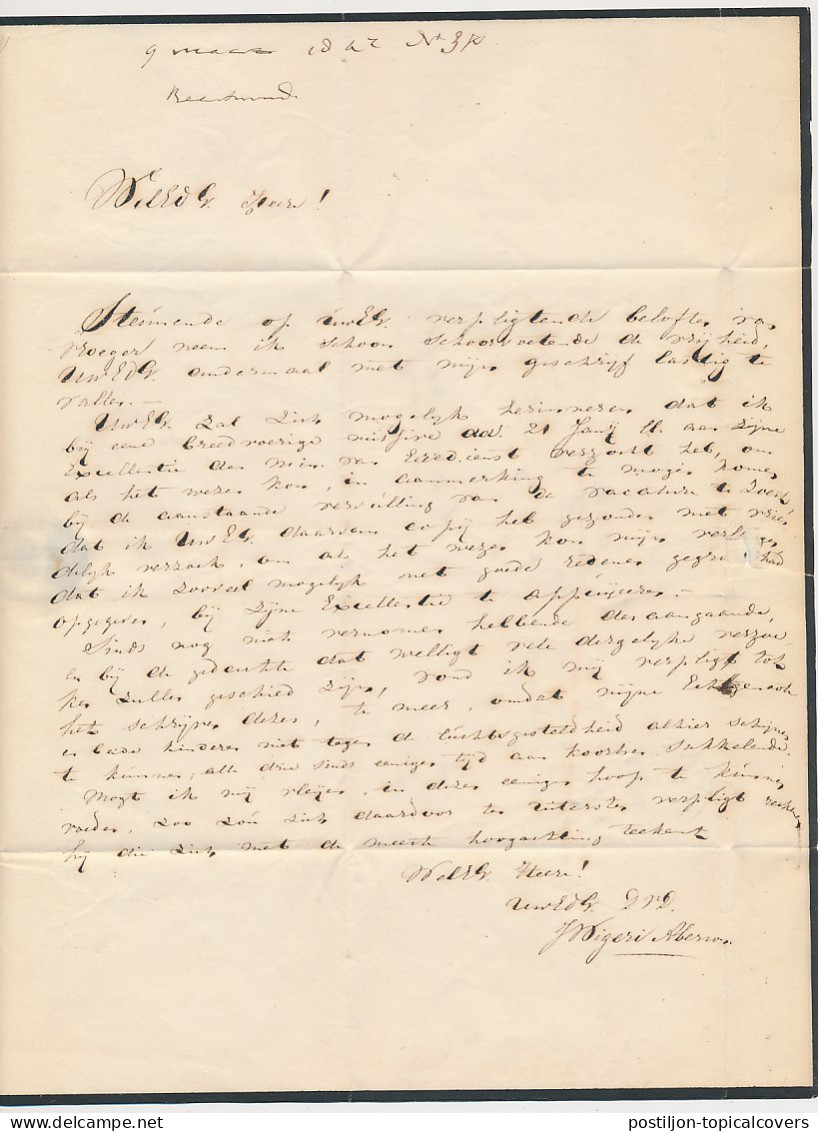 9 maart 1842 No 37
WelEdG. Heer!
Steunende op UwEG. verpligtende belofte, van
vroeger neem ik schoon schoorvoetende de vrijheid,
UwEDG. andermaal met mijn geschrijf lastig te
vallen.—
UwEG. zal zich mogelijk herinneren dat ik
bij eene breedvoerige missive dd. 21 Janij ll. aan Zijne
Excellentie den Min. van Eeredienst verzocht heb, om
als het wezen kon, in aanmerking te mogen komen
bij de aanstaande vervulling van de vacature te
dat ik UwEG. daarvan copij heb gezonden met vrien
delijk verzoek, om als het wezen kon mijn verlangen
dat ik zooveel mogelijk met goede redenen gegrond had
opgegeven, bij Zijne Excellentie te appuijeren.—
Sinds nog niet vernomen hebbende des aangaande,
en bij de gedachte dat welligt vele dergelijke verzoe
ken zullen geschied zijn, vond ik mij verpligt tot
het schrijven dezes, te meer, omdat mijne Echtgenoote
en beide kinderen niet tegen de luchtsgesteldheid alhier schijnen
te kunnen; alle drie sinds eenigen tijd aan koorts sukkelende.
Mogt ik mij vleijen, in dezen eenige hoop te kunnen
voeden, zoo zou zich daardoor ten uiterste verpligt rekenen
hij die zich met de meeste hoogachting teekent
WelEG. Heer!
UwEdG. DVD.
J Wigeri Aberson
postiljon-topicalcovers